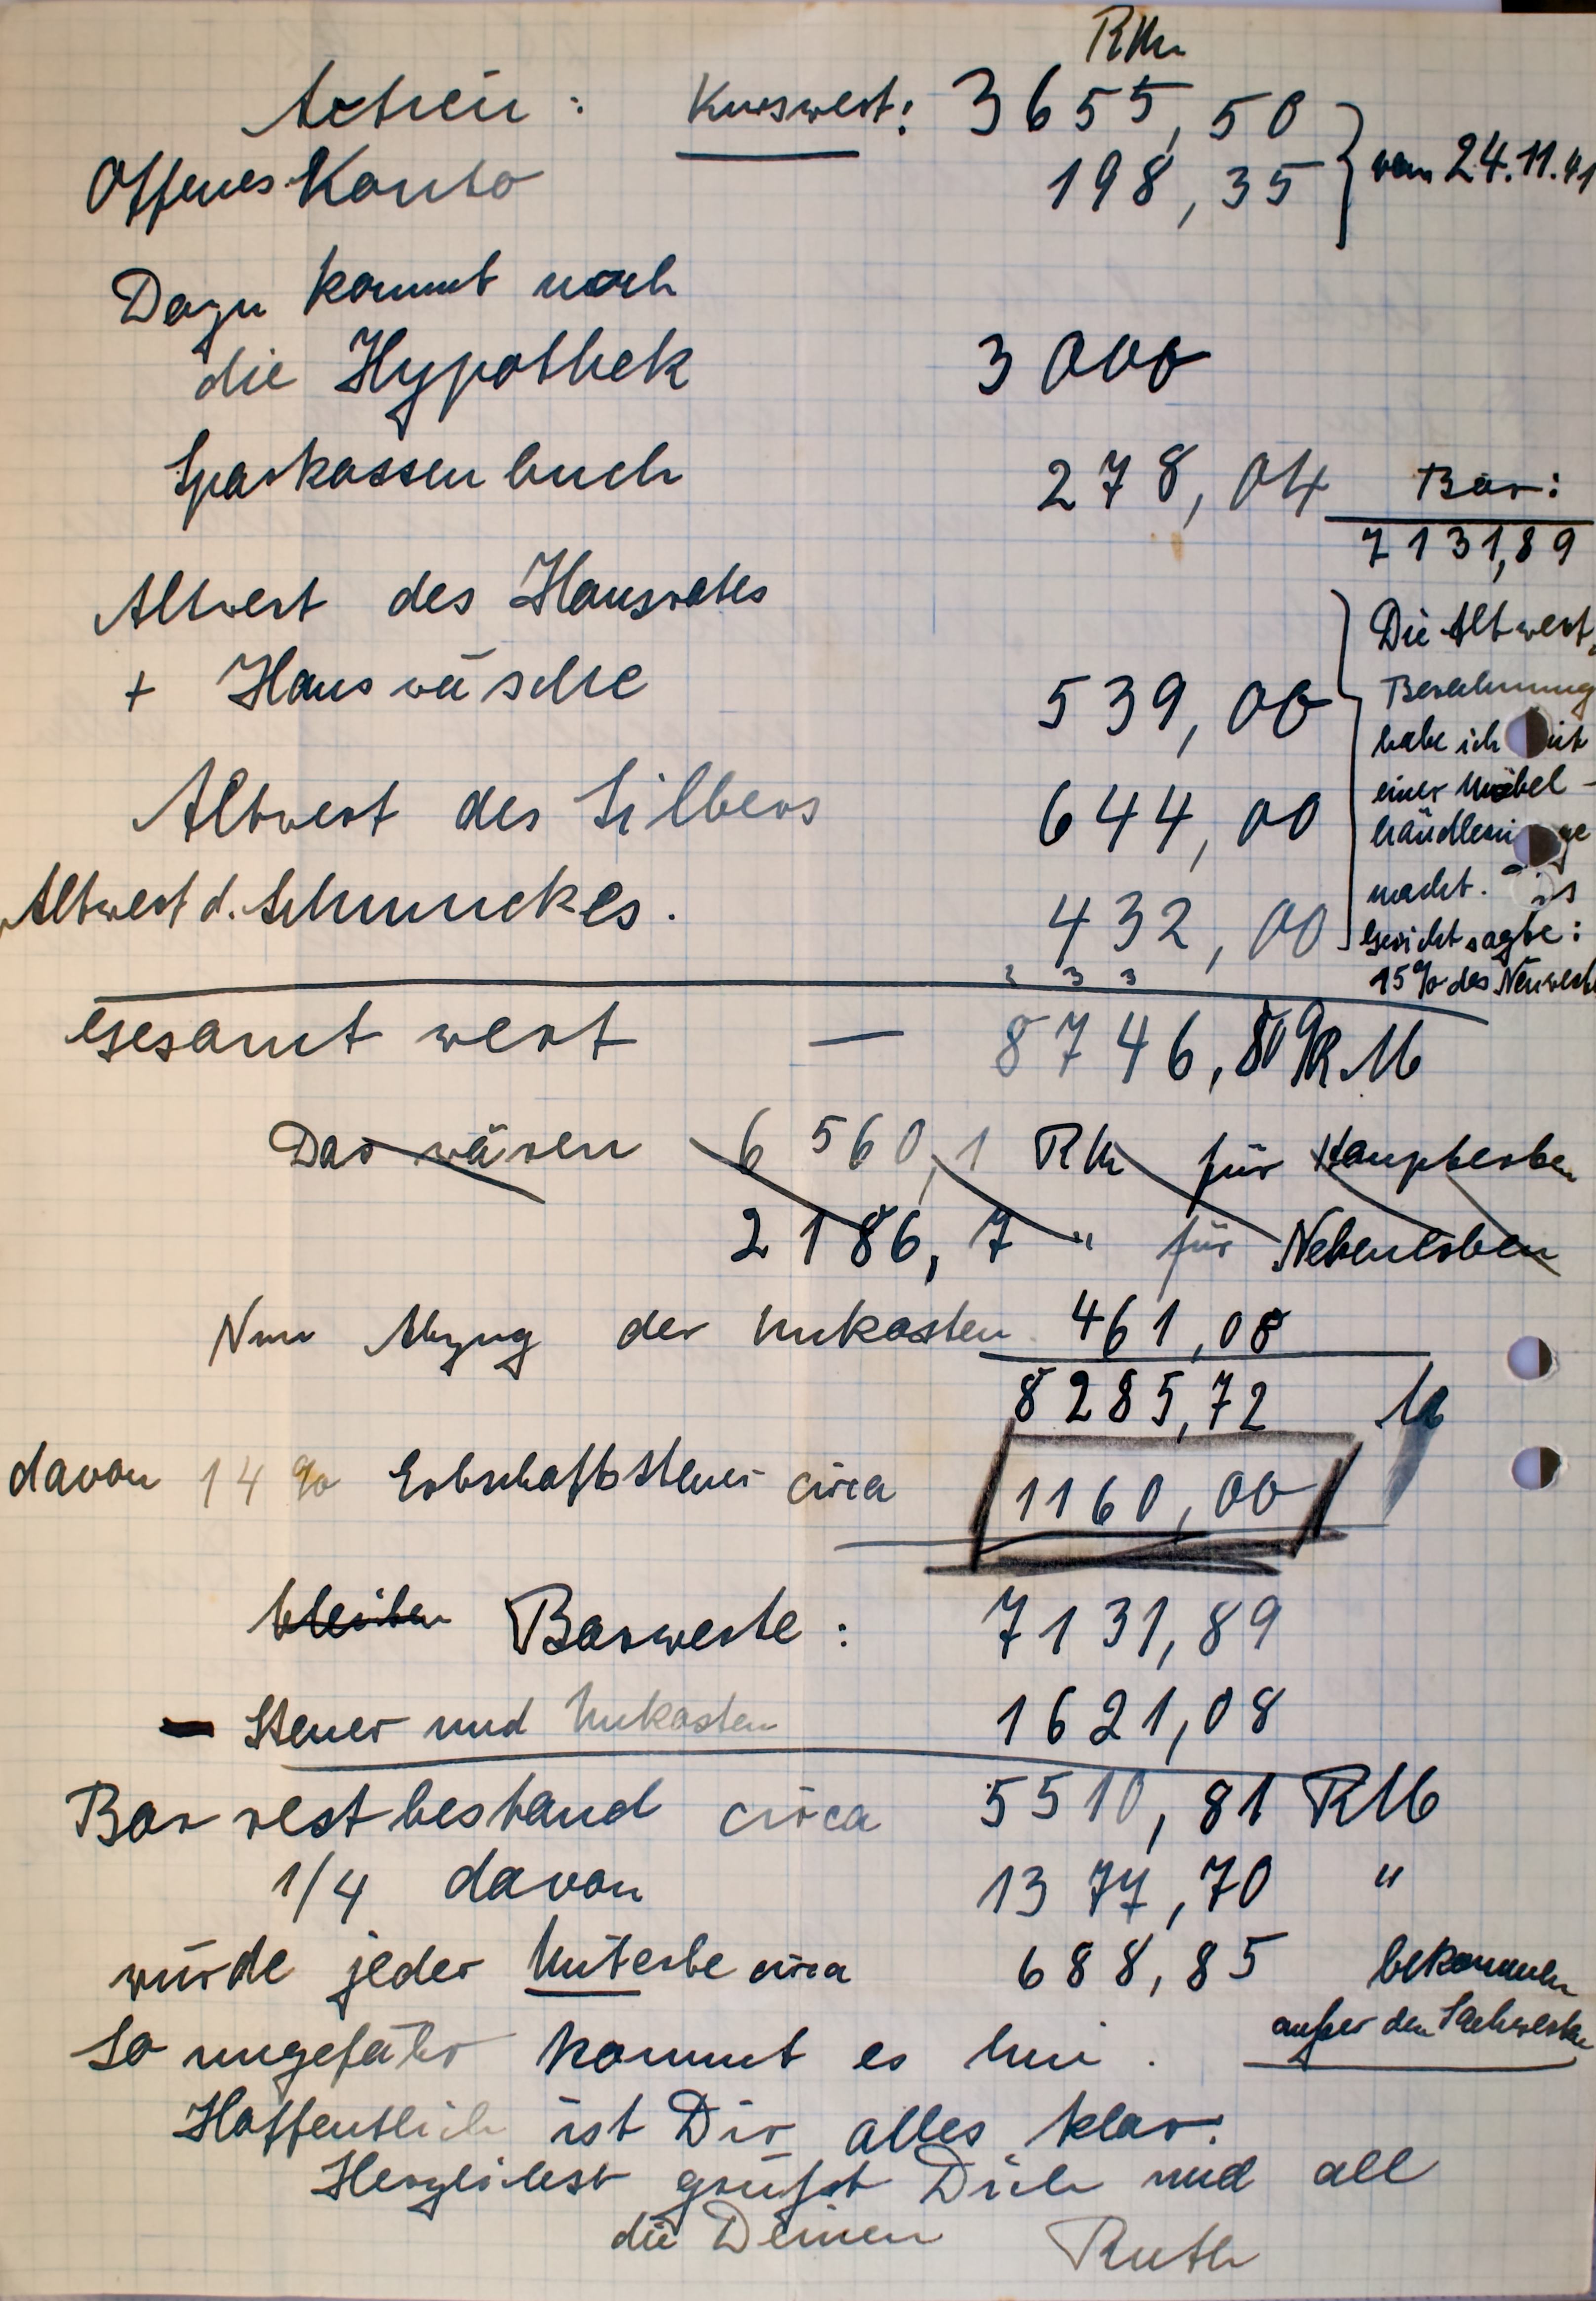 RM
Actien : Kurswert: 3655,50
Offenes Konto 198,35 } vom 24.11.41
Dazu kommt noch
die Hypothek 3000
Sparkassenbuch 278,04 Bar:
7131,89
Altwert des Hausrates
+ Hauswäsche 539,00
Altwert des Silbers 644,00
Altwert d. Schmuckes. 432,00
Die Altwert-
Berechnung
habe ich mit
einer Möbel-
händlerin ge
macht. Das
Gericht sagte:
15% des Neuwerts
2 3 3
Gesamtwert — 8746,89 RM
Das wären 6560,1 RM für Haupterben
2186,7 " für Nebenerben
Nun Abzug der Unkosten 461,08
8285,72 M
davon 14% Erbschaftssteuer circa 1160,00
bleiben Barwerte : 7131,89
- Steuer und Unkosten 1621,08
Barrestbestand circa 5510,81 RM
1/4 davon 1377,70 "
würde jeder Miterbe circa 688,85 bekommen
außer den Sachwerten
So ungefähr kommt es hin.
Hoffentlich ist Dir alles klar.
Herzlichst grüßt Dich und all
die Deinen Ruth